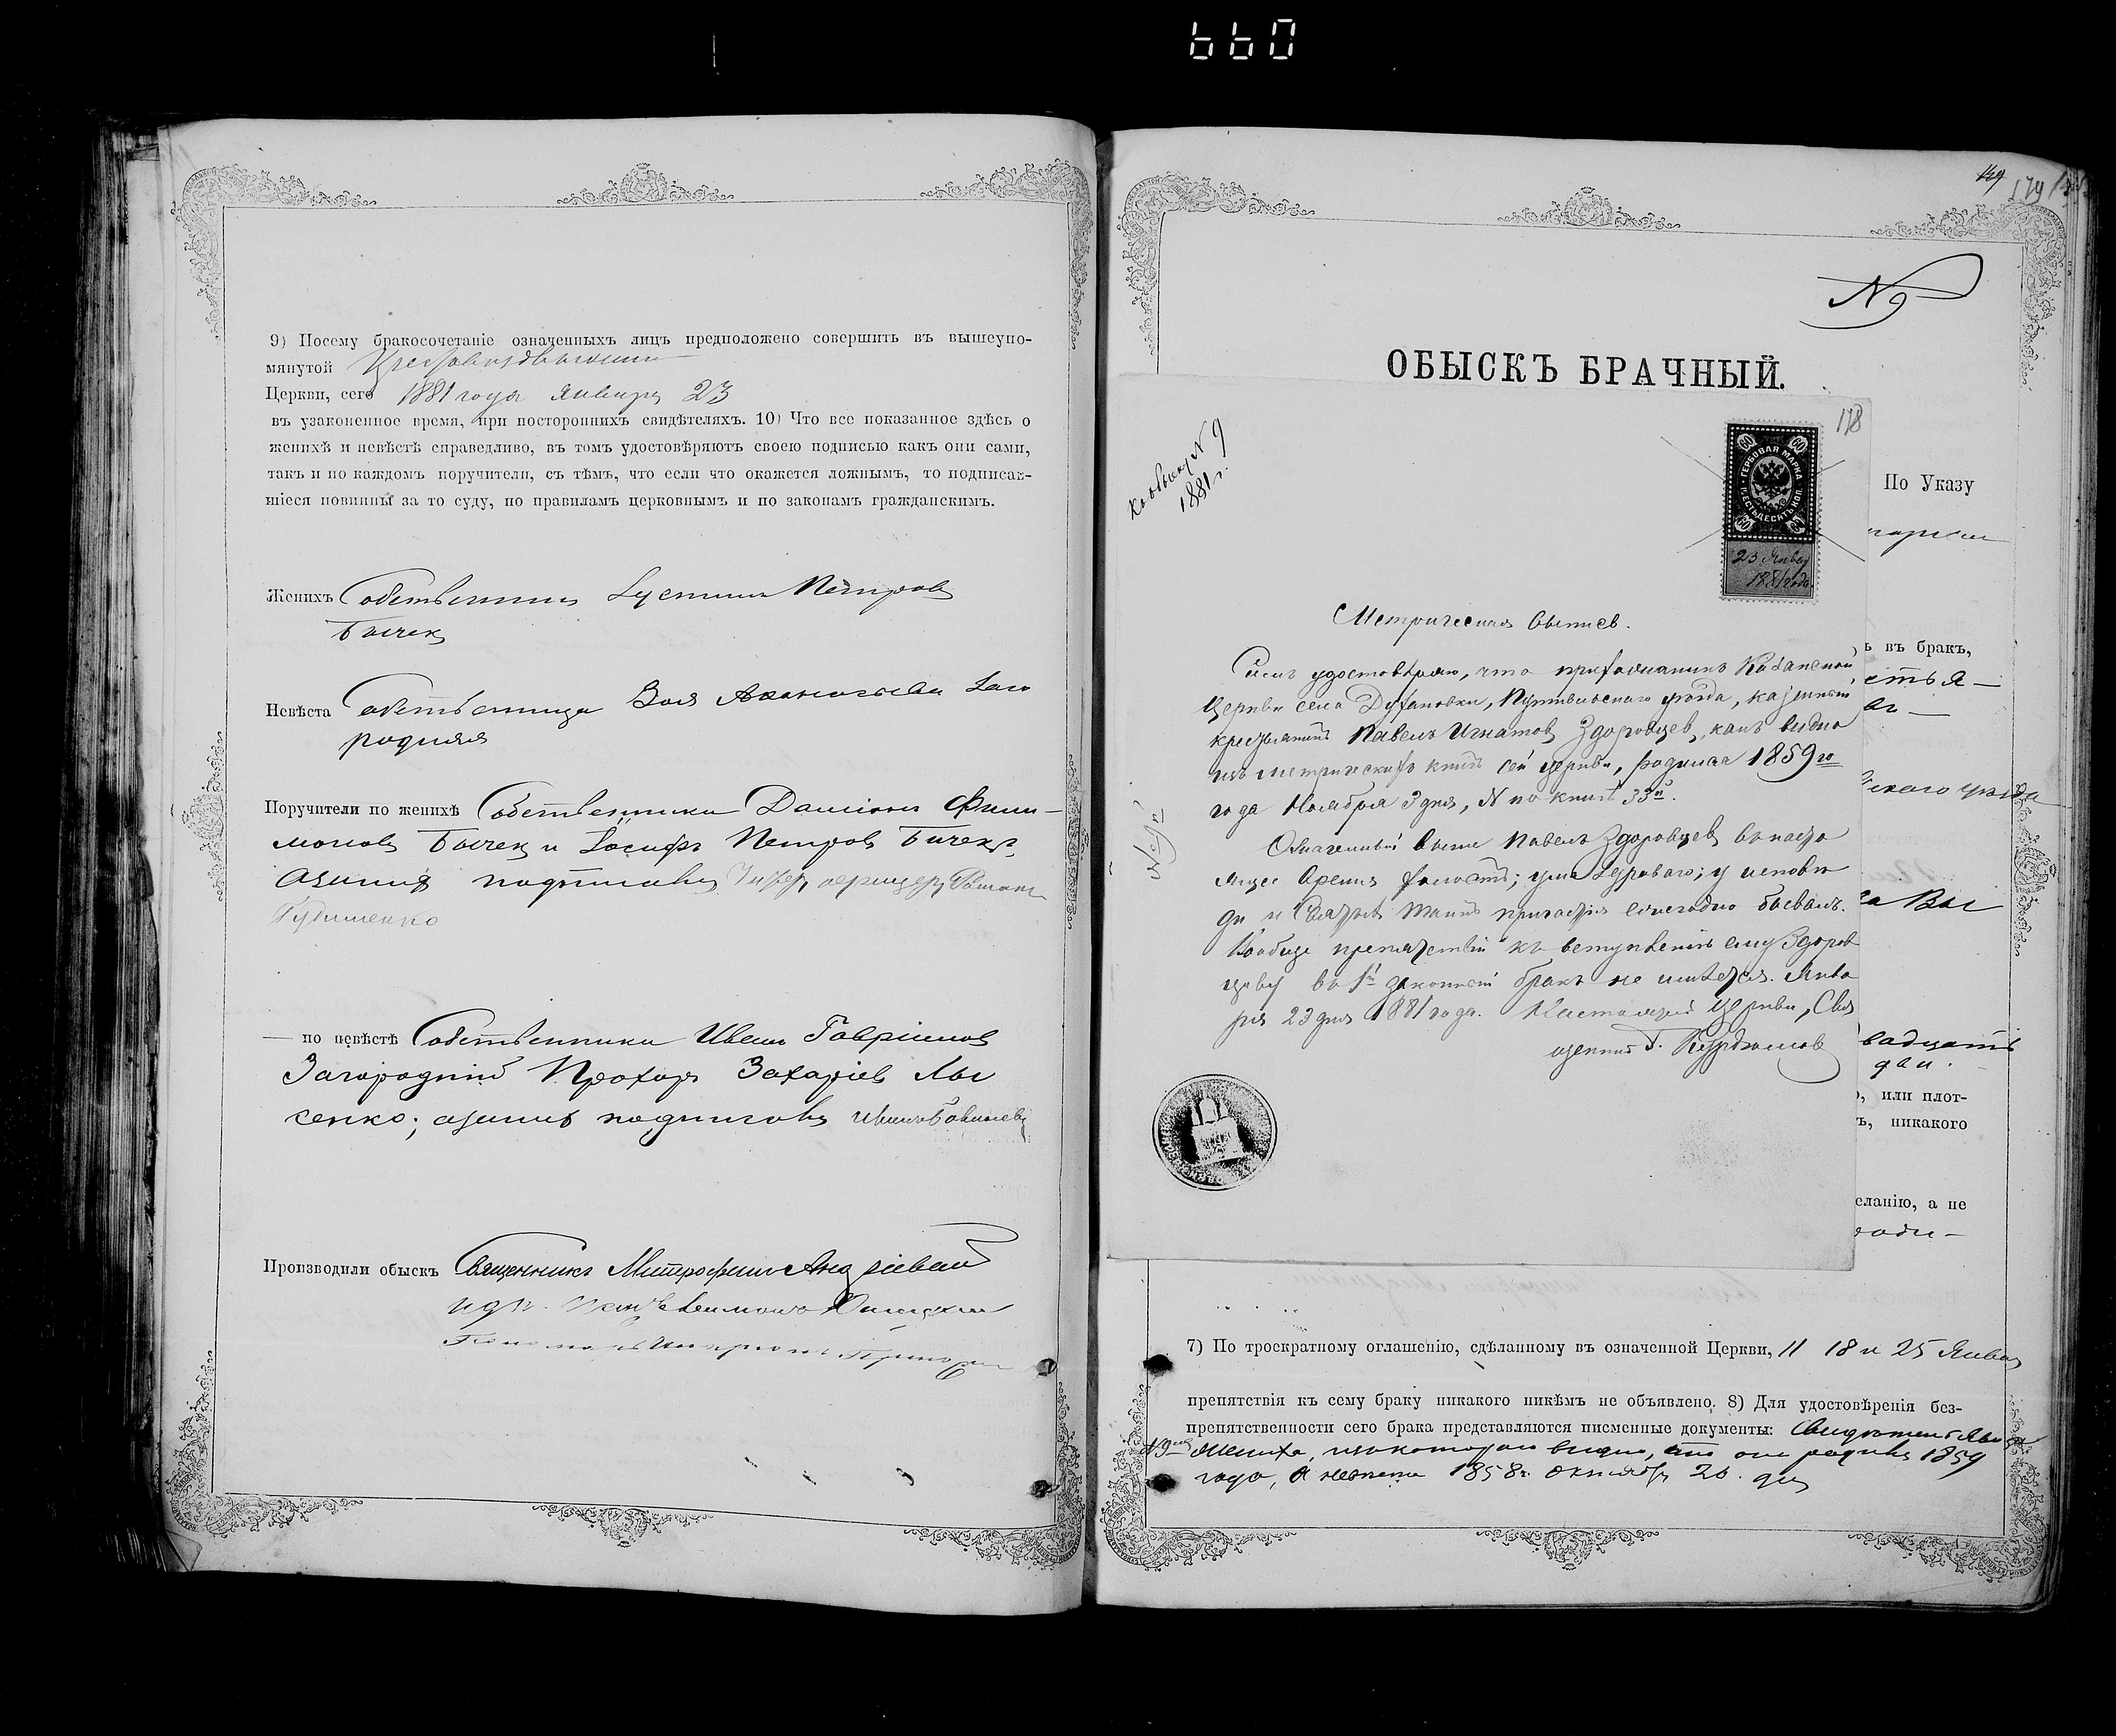 660
9) Посему бракосочетаніе означенныхъ лицъ предположено совершить въ вышеупо-
мянутой Крестовоздвиженской
Церкви, сего 1881 года Января 23
въ узаконенное время, при постороннихъ свидѣтеляхъ. 10) Что все показанное здѣсь о
женихѣ и невѣстѣ справедливо, въ томъ удостовѣряютъ своею подписью какъ они сами,
такъ и по каждомъ поручители, съ тѣмъ, что если что окажется ложнымъ, то подписав-
шіеся повинны за то суду, по правиламъ церковнымъ и по законамъ гражданскимъ.
Женихъ Собственникъ Іустинъ Петровъ
Бычекъ
Невѣста Собственница Заго
родняя
Поручители по женихѣ Собственники Даміанъ Фили-
моновъ Бычекъ и Іосифъ Петровъ Бычекъ,
а за нихъ подписалъ Унтеръ офицеръ Романъ
— по невѣстѣ Собственники Иванъ Гавріиловъ
Загородній Прохоръ Захаріевъ Лы
сенко; а за нихъ подписалъ
Производили обыскъ Священникъ Митрофанъ Андріевскій
Пономарь
179
N 9
ОБЫСКЪ БРАЧНЫЙ.
По Указу
178
Къ обыску N 9
1881 г.
ГЕРБОВАЯ МАРКА
ШЕСТЬДЕСЯТЪ КОП.
60 60 60 60
23 Января
1881 года
Метрическая выпись.
Симъ удостовѣряю, что прихожанинъ Казанской
Церкви села Духановки, Путивльскаго уѣзда, казенный
крестьянинъ Павелъ Игнатовъ Здоровцевъ, какъ видно
изъ метрическихъ книгъ сей церкви, родился 1859го
года Ноября 3 дня, N по книгѣ 33й.
Означенный выше Павелъ Здоровцевъ въ насто
ящее время холостъ; ума здороваго; у исповѣ
ди и Святыхъ Таинъ причастія ежегодно бывалъ.
Вообще препятствій къ вступленію ему Здоров
цеву въ 1й законный бракъ не имѣется. Янва
ря 23 дня 1881 года. Настоящей Церкви, Свя
щенникъ Г. Курдюмовъ
N 9й
ъ въ бракъ,
естья-
скаго уѣзда
вадцать
о, или плот-
ъ, никакого
еланію, а не
роди-
7) По троекратному оглашенію, сдѣланному въ означенной Церкви, 11 18 и 25 Января
препятствія къ сему браку никакого никѣмъ не объявлено. 8) Для удостовѣренія без-
препятственности сего брака представляются писменные документы: Свидѣтельство
жениха, изъ котораго видно, что онъ родился 1859
года, а невѣста 1858 г. Октября 20. дня